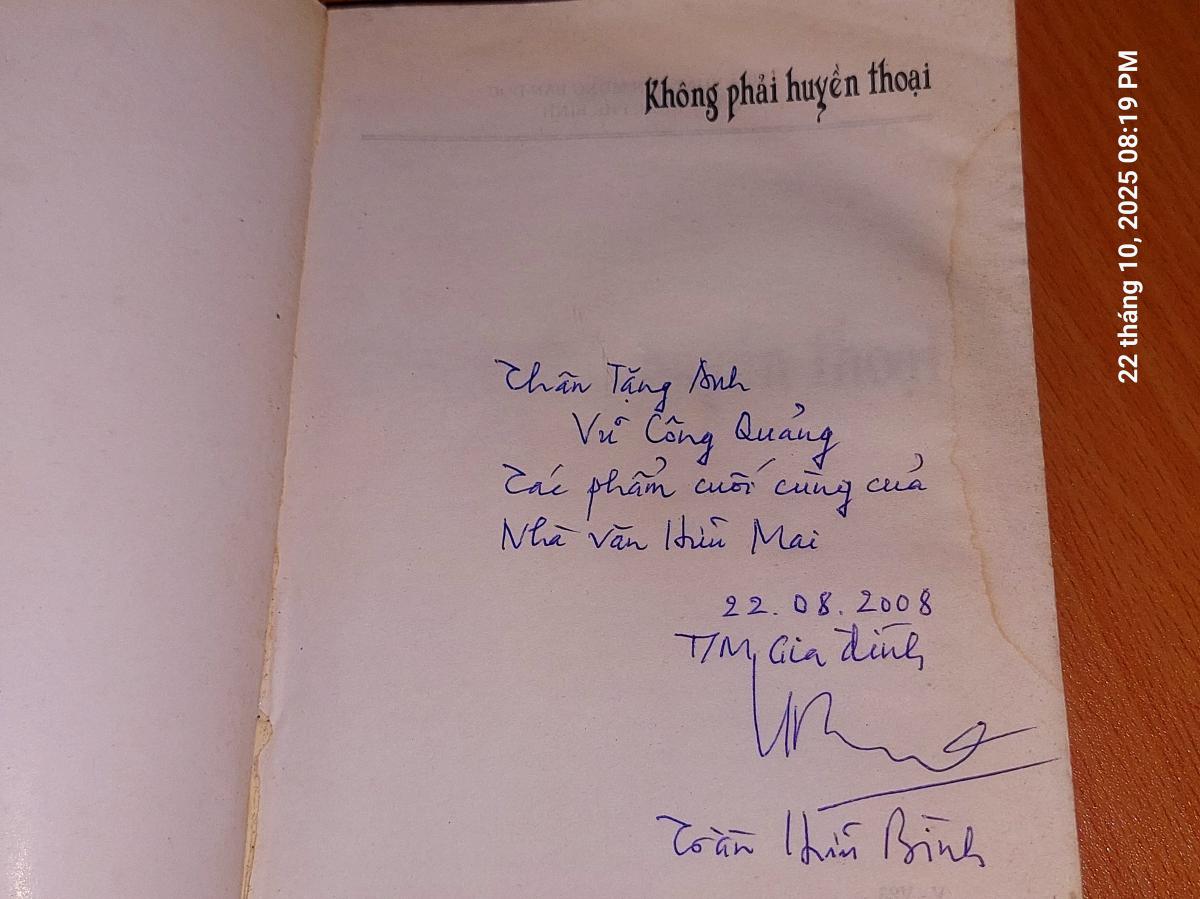 Không phải huyền thoại
Thân Tặng Anh
Vũ Công Quảng
Tác phẩm cuối cùng của
Nhà văn Hữu Mai
22.08.2008
T/M Gia đình
Hữu Bình
22 tháng 10, 2025 08:19 PM